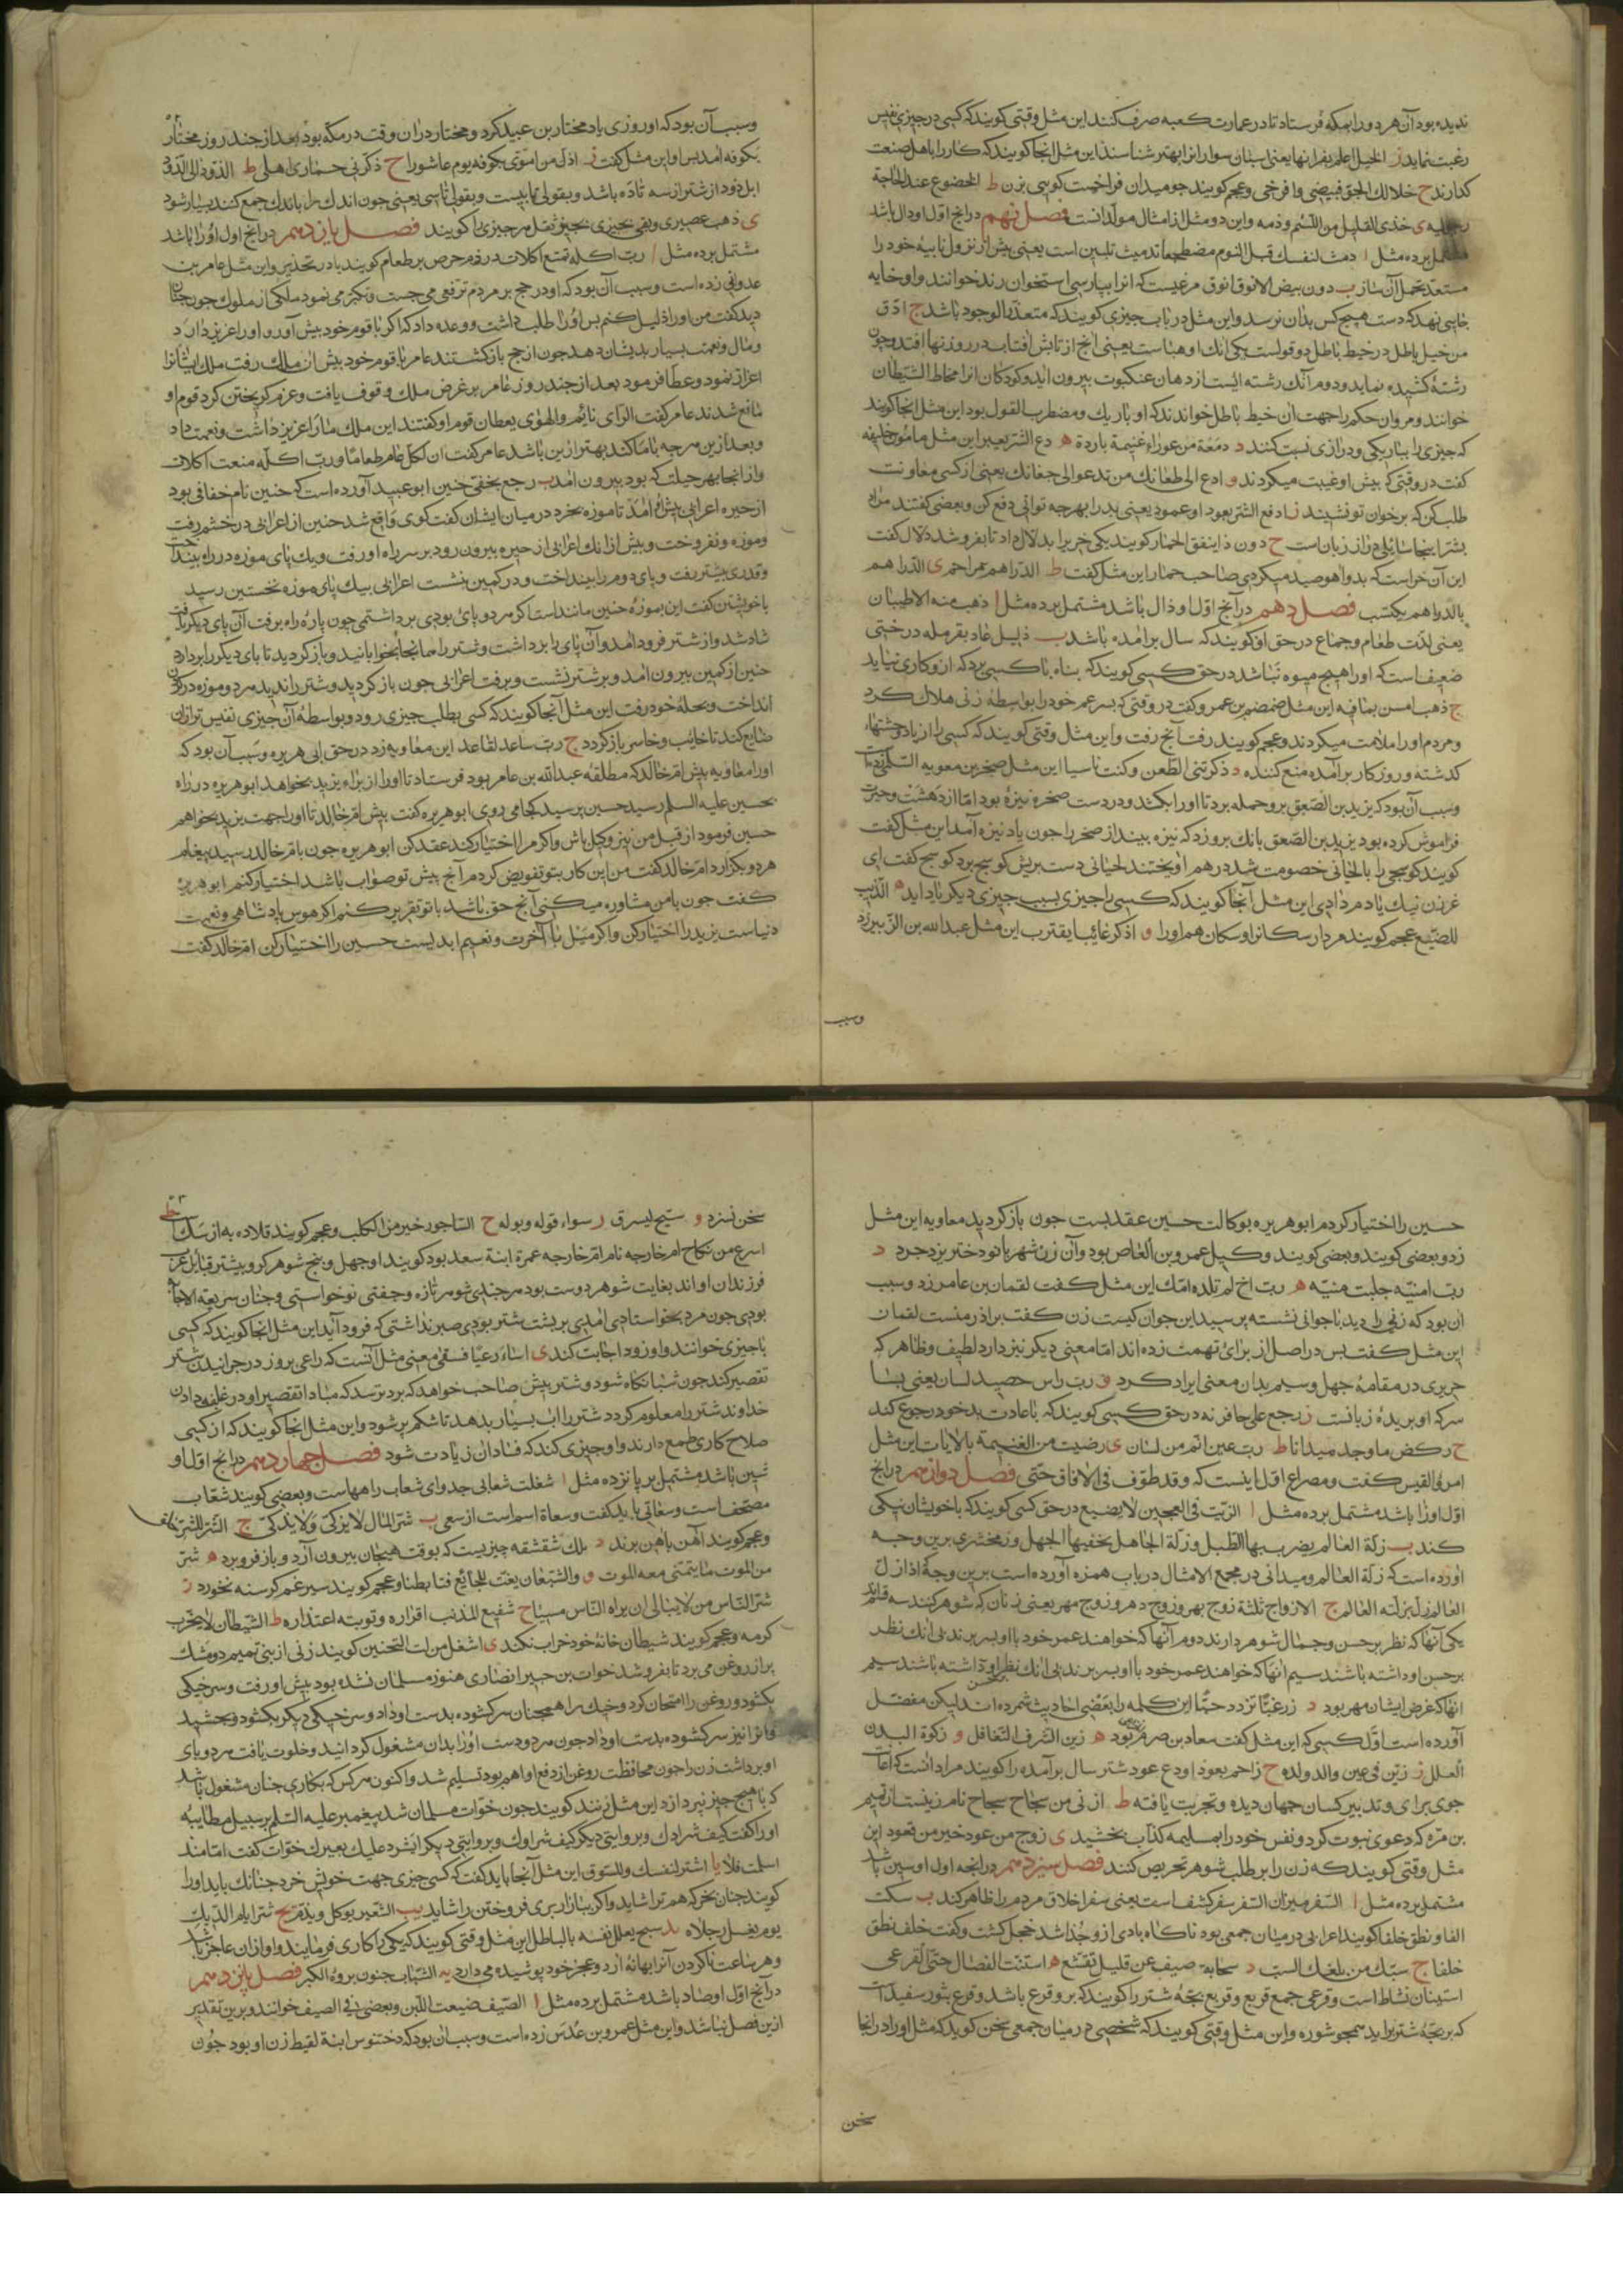 ندیده بود آن هر دو را بمکه فرستاد تا در عمارت کعبه صرف کنند این مثل وقتی کویند که کسی در چیزی نفیس
رغبت نماید ز الخیل اعلم بفرسانها یعنی اسبان سوارانرا بهتر شناسند این مثل انجا کویند که کار را باهل صنعت
کذارند ح خلا لك الجو فبیضی واصفری وعجم کویند جو میدان فراخست کویی بزن ط الخضوع عند الحاجة
رجولیه ی خذی القلیل من اللئیم وذمه واین دو مثل از امثال مولدانست فصل نهم درانج اول او دال باشد
مشتمل برده مثل ا دمث لنفسك قبل النوم مضطجعا تدمیث تلیین است یعنی پیش از نزول نایبه خود را
مستعد تحمل آن ساز ب دون بیض الانوق انوق مرغیست که انرا بپارسی استخوان رند خوانند واو خایه
جایی نهد که دست هیچ کس بدان نرسد واین مثل در باب چیزی کویند که متعذر الوجود باشد ج ادق
من خیط باطل در خیط باطل دو قولست یکی انك او هباست یعنی انج از تابش افتاب در روزنها افتد وچون
رشته کشیده نماید ودوم آنك رشته ایست از دهان عنکبوت بیرون اید وکودکان انرا مخاط الشیطان
خوانند ومروان حکم را جهت ان خیط باطل خواندند که او باریك ومضطرب القول بود این مثل انجا کویند
که چیزی را بباریکی ودرازی نسبت کنند د دمعة من عوراء غنیمة باردة ه دع الشر یعبر این مثل مامون خلیفه
کفت در وقتی که پیش او غیبت میکردند و ادع الی طعانك من تدعو الی جفانك یعنی از کسی معاونت
طلب کن که بر خوان تو نشیند ز ادفع الشر بعود او عمود یعنی بد را بهرچه توانی دفع کن وبعضی کفتند مراد
بشر اینجا سایلی دراز زبان است ح دون ذا ینفق الحمار کویند یکی خر را بدلال داد تا بفروشد دلال کفت
این آن خراست که بدو اهو صید میکردی صاحب حمار این مثل کفت ط الدراهم مراحم ی الدراهم
بالدراهم یکتسب فصل دهم درآنج اول او ذال باشد مشتمل برده مثل ا ذهب منه الاطیبان
یعنی لذت طعام وجماع در حق او کویند که سال برامده باشد ب ذلیل عاذ بقرمله درختی
ضعیف است که اورا هیچ میوه نباشد در حق کسی کویند که پناه با کسی برد که ازو کاری نیاید
ج ذهب امس بما فیه این مثل ضمضم بن عمرو کفت در وقتی که پسر عم خود را بواسطه زنی هلاك کرد
ومردم اورا ملامت میکردند وعجم کویند رفت آنج رفت واین مثل وقتی کویند که کسی را از یاد وحشتها
کذشته وروزکار برآمده منع کنند د ذکرتنی الطعن وکنت ناسیا این مثل صخر بن معویه السلمی زدست
وسبب آن بود که یزید بن الصعق برو حمله برد تا اورا بکشد ودر دست صخر نیزه بود اما از دهشت وحیرت
فراموش کرده بود یزید بن الصعق بانك برو زد که نیزه بینداز صخر را چون یاد نیزه آمد این مثل کفت
کویند کوسجی را با لحیانی خصومت شد درهم آویختند لحیانی دست بریش کوسج برد کوسج کفت ای
غرزن نیك یادم دادی این مثل آنجا کویند که کسی را چیزی بسبب چیزی دیکر یاد اید ه الذیب
للضبع عجم کویند مردار سکانرا وسکان هم اورا و اذکر غایبا یقترب این مثل عبد الله بن الزبیر زد
وسبب
وسبب آن بود که او روزی یاد مختار بن عبید کرد ومختار دران وقت در مکه بود بعد از چند روز مختار
بکوفه امد پس او این مثل کفت ز اذل من اموی بکوفه یوم عاشورا ح ذکرنی حماری اهلی ط الذود الی الذود
ابل ذود از شتر از سه تا ده باشد وبقولی تا بیست وبقولی تا سی یعنی چون اندك را باندك جمع کنند بسیار شود
ی ذهب عصیری وبقی ثجیری فصل یازدهم درانج اول او را باشد
مشتمل برده مثل ا رب اکله تمنع اکلات در ذم حرص بر طعام کویند یا در تحذیر واین مثل عامر بن
عدوانی زده است وسبب آن بود که او در حج بر مردم ترفعی می جست وتکبر می نمود ملکی از ملوك چون چنان
دید کفت من اورا ذلیل کنم پس اورا طلب داشت ووعده داد که اکر با قوم خود پیش آورد اورا عزیز دارد
ومال ونعمت بسیار بدیشان دهد چون از حج باز کشتند عامر با قوم خود پیش از ملك رفت ملك ایشانرا
اعزاز نمود وعطا فرمود بعد از چند روز عامر بر غرض ملك وقوف یافت وعزم کریختن کرد قوم او
مانع شدند عامر کفت الرای نایم والهوی یقظان قوم او کفتند این ملك ما را عزیز داشت ونعمت داد
وبعد ازین هرچه با ما کند بهتر ازین باشد عامر کفت ان لکل عام طعاما ورب اکله منعت اکلات
واز انجا بهر حیلت که بود بیرون امد ب رجع بخفی حنین ابو عبید آورده است که حنین نام خفافی بود
از حیره اعرابی پیش او امد تا موزه بخرد در میان ایشان کفت کوی واقع شد حنین از اعرابی در خشم رفت
وموزه ونفروخت وپیش از انك اعرابی از حیره بیرون رود بر سر راه او رفت ویك پای موزه در راه بینداخت
وقدری پیشتر رفت وپای دوم را بینداخت ودر کمین بنشست اعرابی بیك پای موزه نخستین رسید
با خویشتن کفت این بموزه حنین مانند است اکر هر دو پای بودی برداشتمی چون پاره راه برفت آن پای دیکر یافت
شاد شد واز شتر فرود امد وآن پای را برداشت وشتر را همانجا بخوابانید وباز کردید تا پای دیکر را بردارد
حنین از کمین بیرون امد وبر شتر نشست وبرفت اعرابی چون باز کردید وشتر را ندید هر دو موزه در کردن
انداخت وبحله خود رفت این مثل آنجا کویند که کسی بطلب چیزی رود وبواسطه آن چیزی نفیس تر ازان
ضایع کند تا خایب وخاسر باز کردد ج رب ساعد لقاعد این معاویه زد در حق ابی هریره وسبب آن بود که
اورا معاویه پیش ام خالد که مطلقه عبد الله بن عامر بود فرستاد تا اورا از براء یزید بخواهد ابو هریره در راه
بحسین علیه السلم رسید حسین پرسید کجا می روی ابو هریره کفت پیش ام خالد تا اورا جهت یزید بخواهم
حسین فرمود از قبل من نیز وکیل باش واکر مرا اختیار کند عقد کن ابو هریره چون با ام خالد رسید پیغام
هر دو بکزارد ام خالد کفت من این کار بتو تفویض کردم آنج پیش تو صواب باشد اختیار کنم ابو هریره
کفت چون با من مشاوره میکنی آنج حق باشد با تو تقریر کنم اکر هوس پادشاهی ونعمت
دنیاست یزید را اختیار کن واکر میل با آخرت ونعیم ابدیست حسین را اختیار کن ام خالد کفت
حسین را اختیار کردم ابو هریره بوکالت حسین عقد بست چون باز کردید معاویه این مثل
زد وبعضی کویند وبعضی کویند وکیل عمرو بن العاص بود وآن زن شهربانو دختر یزدجرد د
رب امنیه جلبت منیه ه رب اخ لم تلده امك این مثل کفت لقمان بن عامر زد وسبب
ان بود که زنی را دید با جوانی نشسته پرسید این جوان کیست زن کفت برادر منست لقمان
این مثل کفت پس در اصل از برای تهمت زده اند اما معنی دیکر نیز دارد لطیف وظاهر که
حریری در مقامهٔ چهل وسیم بدان معنی ایراد کرد و رب راس حصید لسان یعنی بسا
سر که او بریدهٔ زبانست ز رجع علی حافرته در حق کسی کویند که با عادت بد خود رجوع کند
ح رکض ما وجد میدانا ط رب عین انم من لسان ی رضیت من الغنیمة بالایاب این مثل
امرو القیس کفت ومصراع اول اینست که وقد طوفت فی الافاق حتی فصل دوازدهم درانج
اول او زا باشد مشتمل برده مثل ا الزیت فی العجین لا یضیع در حق کسی کویند که با خویشان نیکی
کند ب زلة العالم یضرب بها الطبل وزلة الجاهل یخفیها الجهل وزمخشری برین وجه
آورده است که زلة العالم ومیدانی در مجمع الامثال در باب همزه آورده است برین وجه اذا زل
العالم زل بزلته العالم ج الازواج ثلثة زوج بهر وزوج دهر وزوج مهر یعنی زنان که شوهر کنند سه قسم اند
یکی آنها که نظر بر حسن وجمال شوهر دارند دوم آنها که خواهند عمر خود با او بسر برند بی انك نظر
بر حسن او داشته باشند سیم انها که خواهند عمر خود با او بسر برند بی انك نظر او داشته باشند سیم
انها که غرض ایشان مهر بود د زر غبا تزدد حبا این کلمه را بعضی احادیث شمرده اند لیکن مفضل
آورده است اول کسی که این مثل کفت معاد بن صرم بود ه زین الشرف التغافل و زکوة البدن
العلل ز زین فی عین والد ولده ح زاحم بعود او دع عود شتر سال برآمده را کویند مراد انست که اعانت
جوی برای وتدبیر کسان جهان دیده وتجربت یافته ط ازنی من سجاح سجاح نام زنیست از تمیم
بن مره که دعوی نبوت کرد ونفس خود را بمسیلمه کذاب بخشید ی زوج من عود خیر من قعود این
مثل وقتی کویند که زن را بر طلب شوهر تحریص کنند فصل سیزدهم درانجه اول او سین باشد
مشتمل برده مثل ا السفر میزان السفر سفر کشف است یعنی سفر اخلاق مردم را ظاهر کند ب سکت
الفا ونطق خلفا کویند اعرابی در میان جمعی بود ناکاه بادی ازو جدا شد خجل کشت وکفت خلف نطق
خلفا ج سبك من بلغك السب د سحابة صیف عن قلیل تقشع ه استنت الفصال حتی القرعی
استنان نشاط است وقرعی جمع قریع وقریع بچهٔ شتر را کویند که برو قرع باشد وقرع بثور سفید است
که بر بچهٔ شتر براید همچو شوره واین مثل وقتی کویند که شخصی در میان جمعی سخن کوید که مثل اورا در انجا
سخن
سخن نسزد و سیح لیسرق ز سواء قوله وبوله ح الساجور خیر من الکلب وعجم کویند قلاده به از سك ط
اسرع من نکاح ام خارجه نام ام خارجه عمرة ابنة سعد بود کویند او چهل وپنج شوهر کرد وبیشتر قبایل عرب
فرزندان او اند بغایت شوهر دوست بود هر چندی شوهر تازه وجفتی نو خواستی وچنان سریعه الاجابه
بودی چون مرد بخواستاری امدی بر پشت شتر بودی صبر نداشتی که فرود آید این مثل انجا کویند که کسی
با چیزی خوانند واو زود اجابت کند ی اساء رعیا فسقی معنی مثل آنست که راعی بروز در چرانیدن شتر
تقصیر کند چون شبانکاه شود وشتر پیش صاحب خواهد که برد ترسد که مبادا تقصیر او در علف دادن
خداوند شتر را معلوم کردد شتر را اب بسیار بدهد تا شکم پر شود واین مثل انجا کویند که از کسی
صلاح کاری طمع دارند واو چیزی کند که فساد ان زیادت شود فصل چهاردهم درانج اول او
شین باشد مشتمل بر پانزده مثل ا شغلت شعابی جدوای شعاب راهها است وبعضی کویند شعاب
مصحف است وسعاتی باید کفت وسعاة اسم است از سعی ب شر المال لا یزکی ولا یذکی ج الشر للشر خلف
وعجم کویند آهن بآهن برند د تلك شقشقه چیزیست که بوقت هیجان بیرون آرد وباز فرو برد ه شر
من الموت ما یتمنی معه الموت و والشبعان یفت للجایع فتا بطیئا وعجم کویند سیر غم کرسنه نخورد ز
شر الناس من لا یبالی ان یراه الناس مسیا ح شفیع المذنب اقراره وتوبته اعتذاره ط الشیطان لا یخرب
کرمه وعجم کویند شیطان خانهٔ خود خراب نکند ی اشغل من ذات النحیین کویند زنی از بنی تمیم دو مشك
پر از روغن می برد تا بفروشد خوات بن جبیر انصاری هنوز مسلمان نشده بود پیش او رفت وسر خیکی
بکشود وروغن را امتحان کرد وخیك را همچنان سر کشوده بدست او داد وسر خیکی دیکر بکشود وبچشید
وانرا نیز سر کشوده بدست او داد چون هر دو دست اورا بدان مشغول کردانید وخلوت یافت هر دو پای
او برداشت زن را چون محافظت روغن از دفع او اهم بود تسلیم شد واکنون هر کس که بکاری چنان مشغول باشد
که با هیچ چیز نپردازد این مثل زنند کویند چون خوات مسلمان شد پیغمبر علیه السلم بر سبیل مطایبه
اورا کفت کیف شرادك وبروایتی دیکر کیف شراؤك وبروایتی دیکر ایشرد علیك بعیرك خوات کفت اما منذ
اسلمت فلا یا اشتر لنفسك وللسوق این مثل آنجا باید کفت که کسی چیزی جهت خویش خرد چنانك باید اورا
کویند چنان بخر که هم ترا شاید واکر ببازار بری فروختن را شاید یب الشعیر یوکل ویذم یج شر ایام الدیك
یوم یغسل رجلاه ید شبح یعلل نفسه بالباطل این مثل وقتی کویند که یکی را کاری فرمایند واو ازان عاجز باشد
وهر ساعت ناکردن آنرا بهانهٔ آرد وعجز خود پوشیده می دارد یه الشباب جنون بروه الکبر فصل پانزدهم
درآنج اول او صاد باشد مشتمل برده مثل ا الصیف ضیعت اللبن وبعضی فی الصیف خوانند وبرین تقدیر
ازین فصل نباشد واین مثل عمرو بن عدس زده است وسبب ان بود که دختنوس ابنة لقیط زن او بود چون